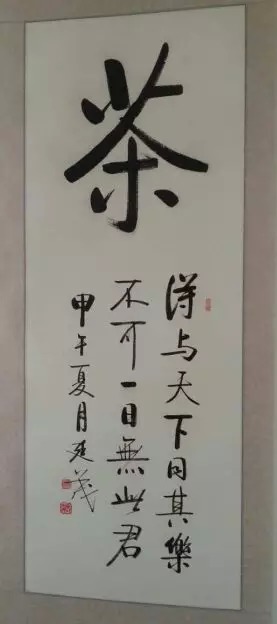 茶
得与天下同其樂
不可一日無此君
甲午夏月延茂